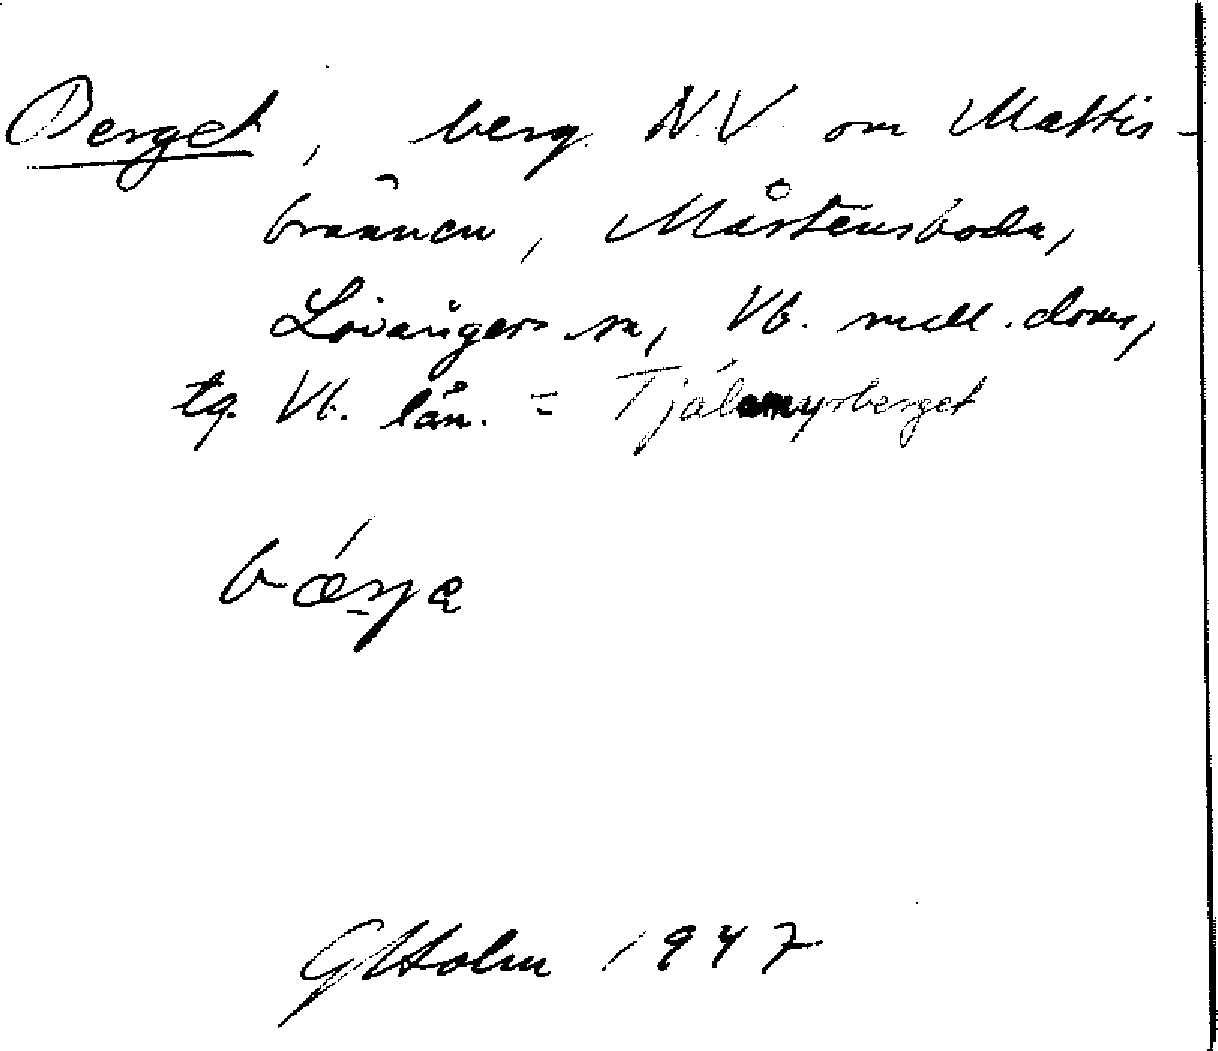 Berget, berg N.V. om Mattis-
brännen, Mårtensboda,
Lövångers sn, Vb. mell. doms,
tg. Vb. län. = Tjälamyrberget
G Holm 1947